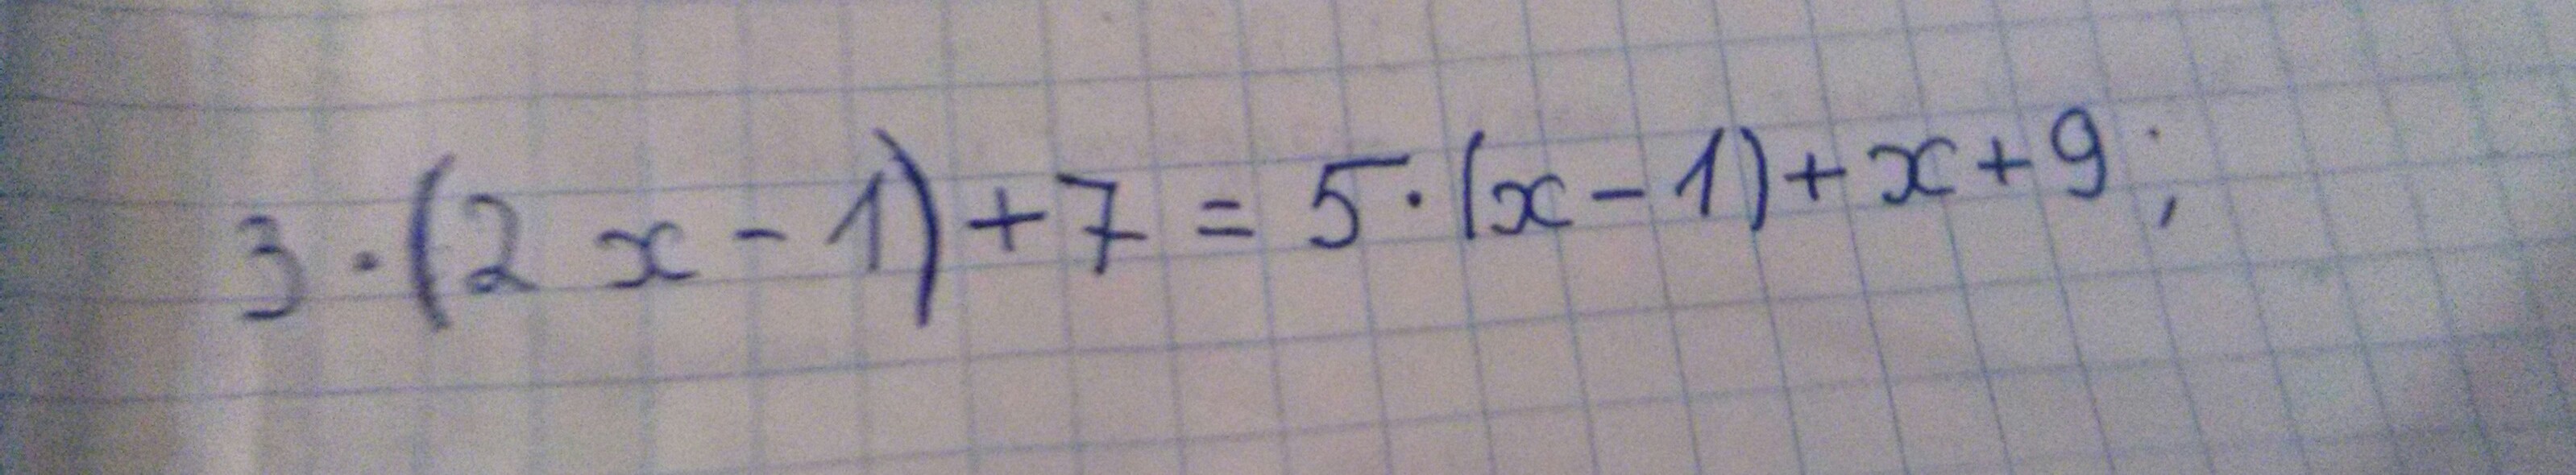 3·(2x-1)+7=5·(x-1)+x+9;